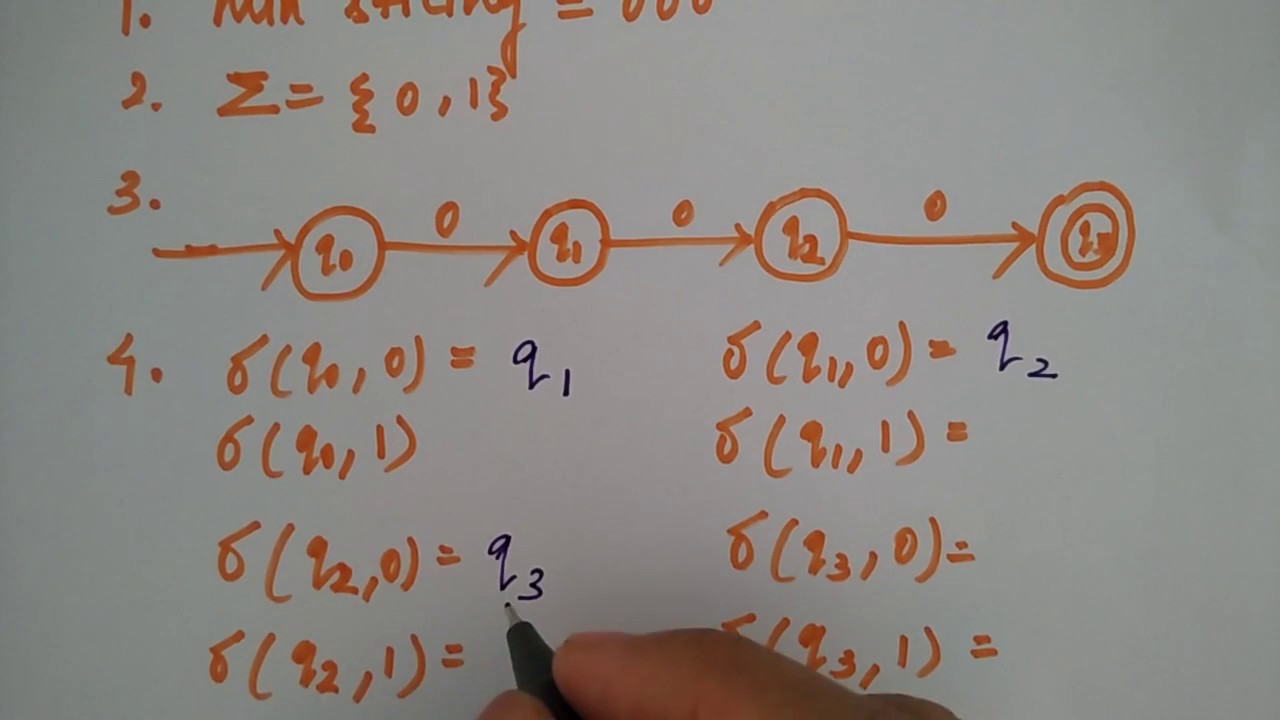 1. Min string = 000
2. Σ = {0,1}
3. q0 0 q1 0 q2 0 q3
4. δ(q0,0) = q1 δ(q1,0) = q2
δ(q0,1) δ(q1,1) =
δ(q2,0) = q3 δ(q3,0) =
δ(q2,1) = δ(q3,1) =